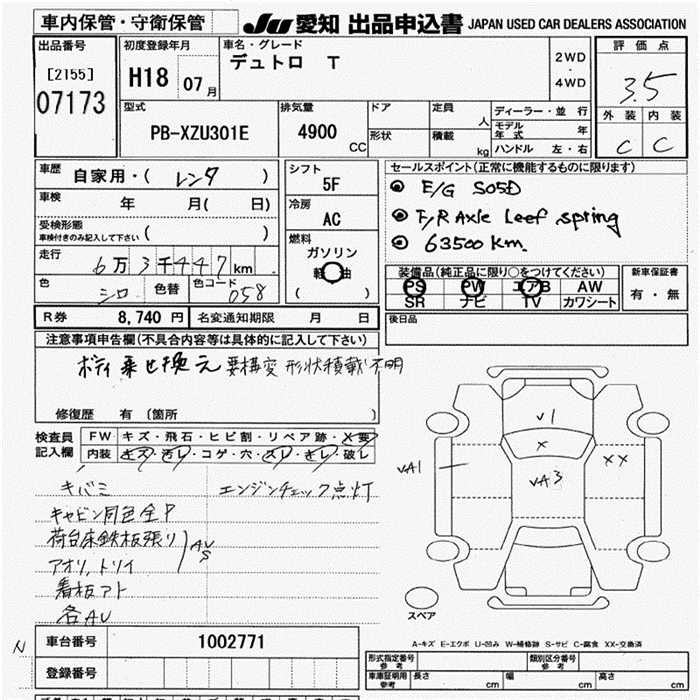 車内保管・守衛保管
JU 愛知 出品申込書 JAPAN USED CAR DEALERS ASSOCIATION
出品番号
[2155]
07173
初度登録年月
H18 07月
車名・グレード
デュトロ T
2WD
・
4WD
評価点
3.5
外装 内装
C C
型式
PB-XZU301E
排気量
4900 CC
ドア
形状
定員 人
積載 kg
ディーラー・並行
モデル年式 年
ハンドル 左・右
車歴
自家用・( レンタ )
車検 年 月( 日)
受検形態
車検付きのみ記入して下さい ( )
走行
6万3千447km
色 シロ 色替 色コード 058
シフト
5F
冷房
AC
燃料
ガソリン
軽油
( )
セールスポイント(正常に機能するものに限ります)
E/G S05D
F/R Axle Leef spring
63500 km.
装備品(純正品に限り○をつけてください)
PS PW エアB AW
SR ナビ TV カワシート
新車保証書
有・無
R券 8,740 円 名変通知期限 月 日
後日品
注意事項申告欄(不具合内容等は具体的に記入して下さい)
ボディ乗せ換え 要構変 形状積載不明
修復歴 有 〔箇所 〕
検査員記入欄
FW キズ・飛石・ヒビ割・リペア跡・X要
内装 キズ・汚レ・コゲ・穴・スレ・キレ・破レ
キバミ エンジンチェック点灯
キャビン同色全P
荷台床鉄板張り
アオリ、トリイ
AUS
看板アト
各AU
V1
X
VA3
VA1
XX
スペア
A-キズ E-エクボ U-凹み W-補修跡 S-サビ C-腐食 XX-交換済
N
車台番号 1002771
登録番号
形式指定番号 参考
類別区分番号 参考
車庫証明用 参考 長さ cm 幅 cm 高さ cm